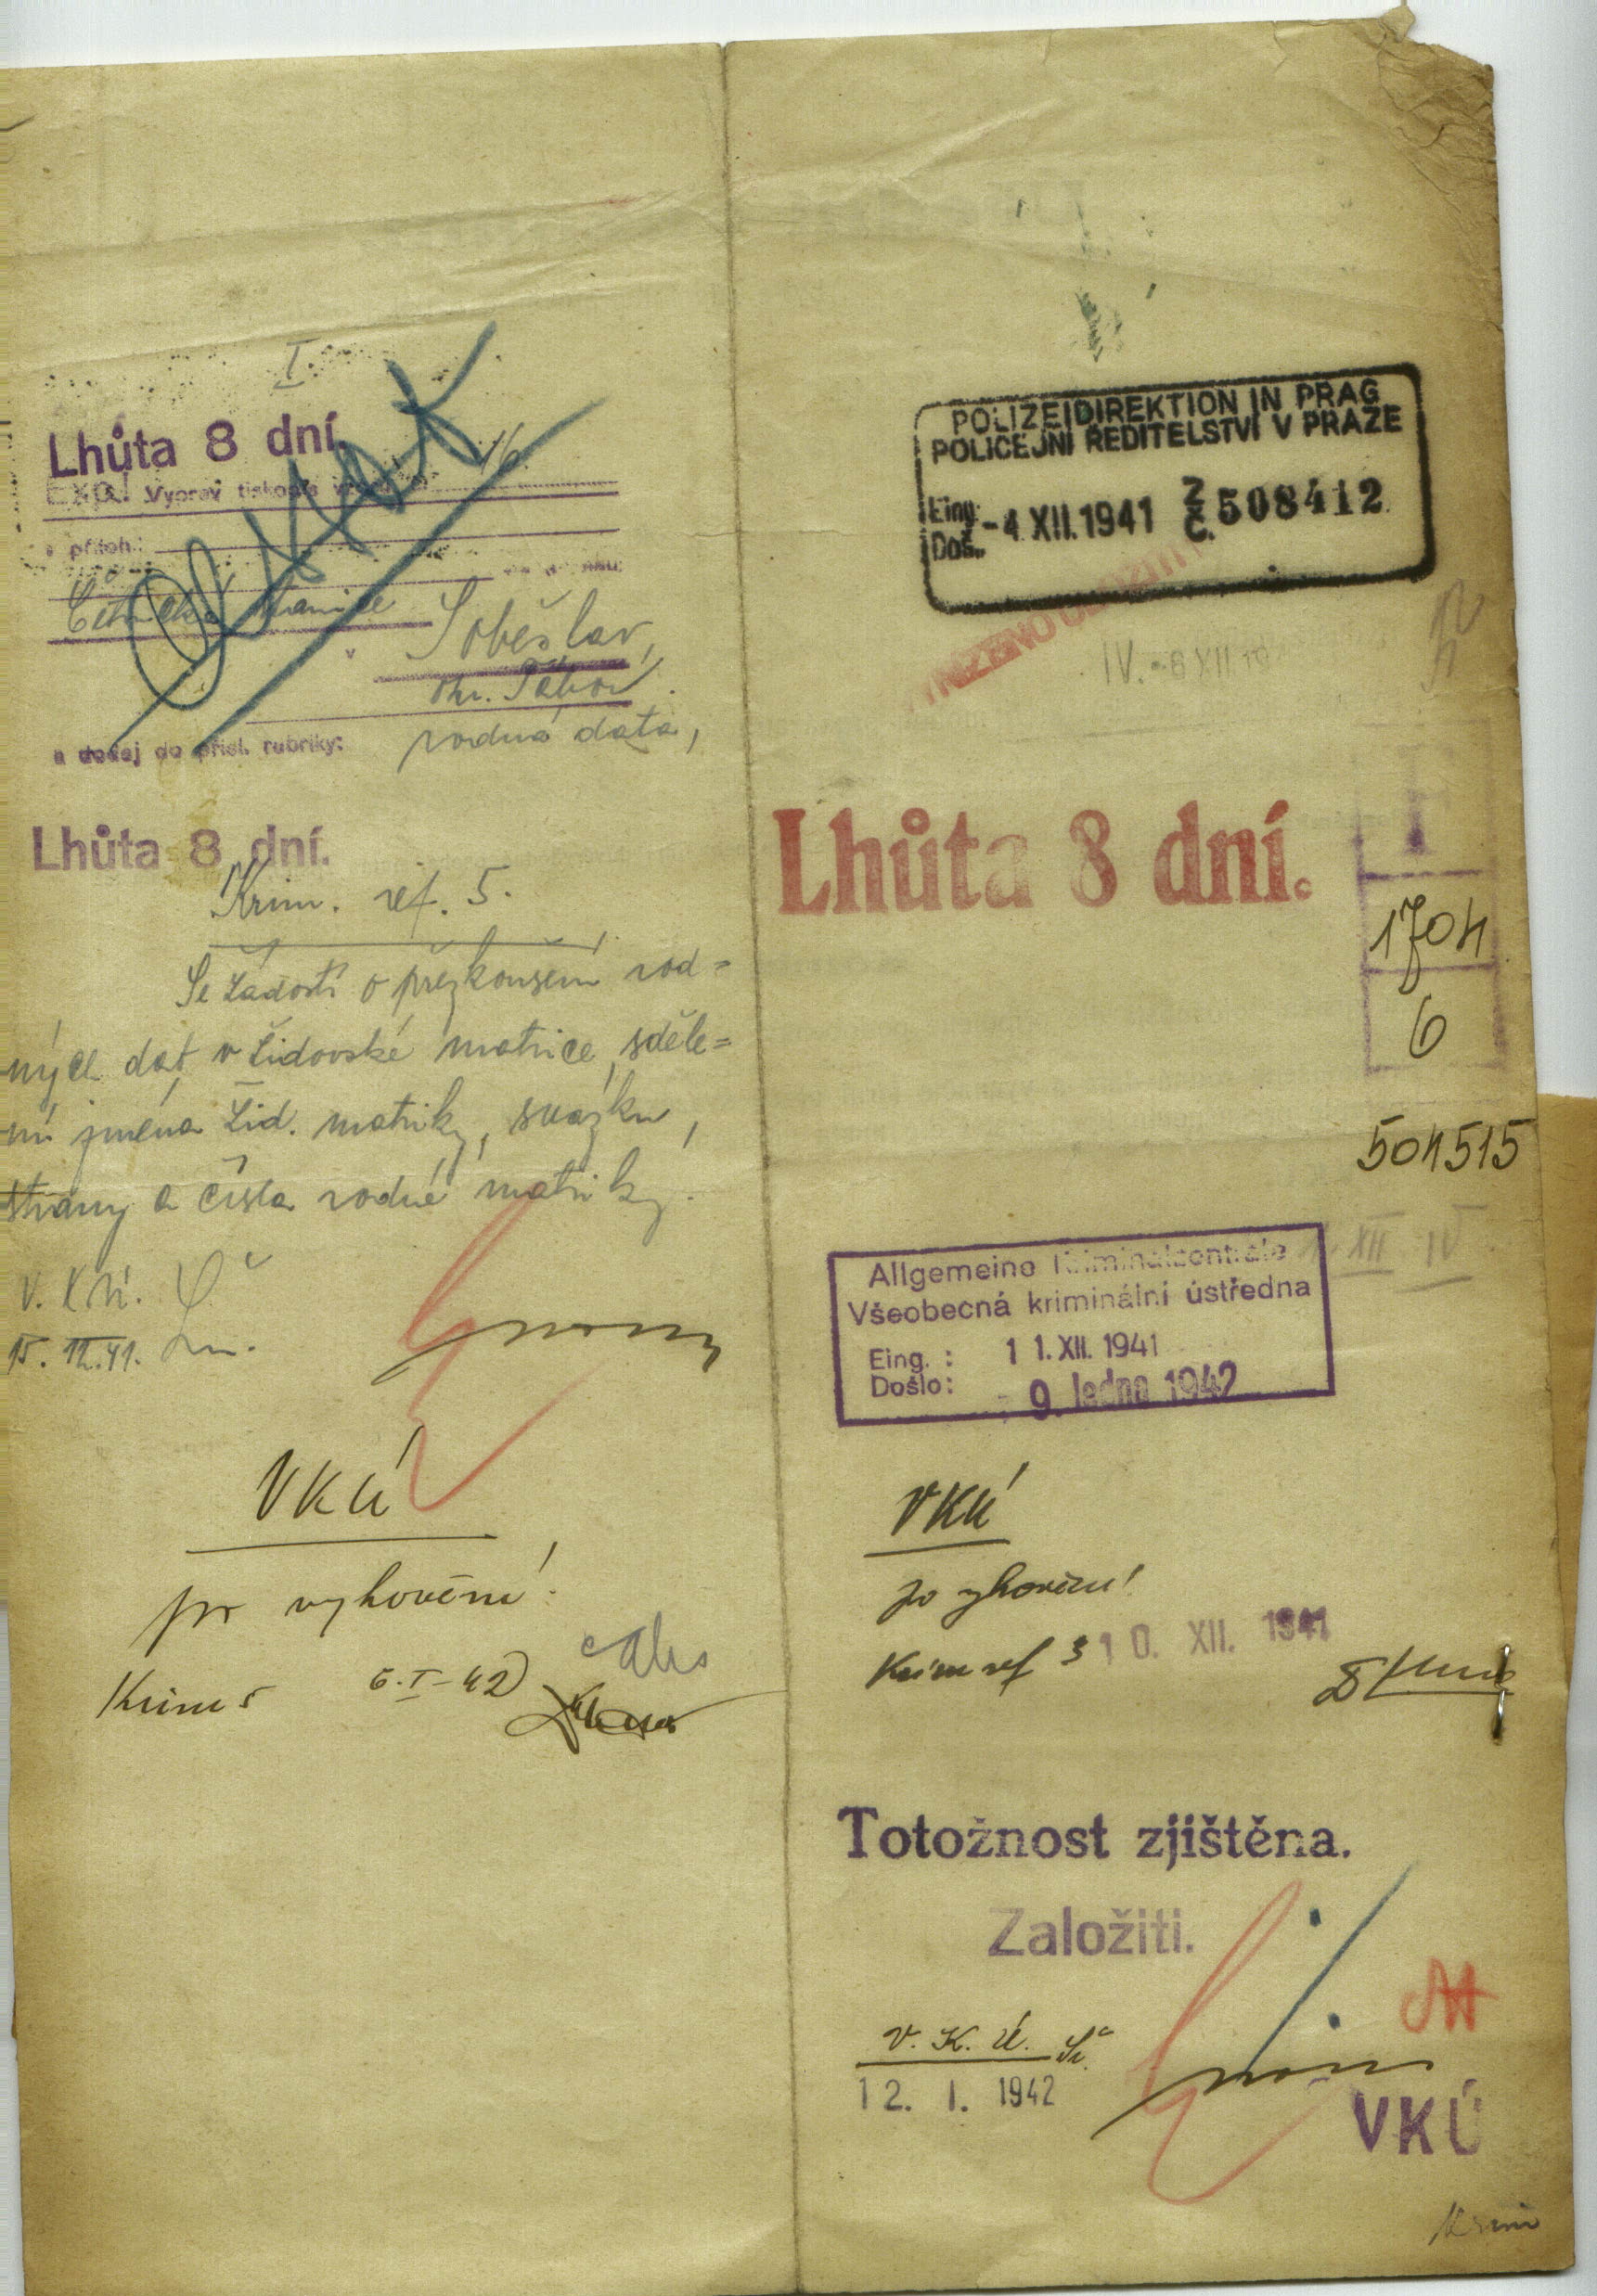 I.
Lhůta 8 dní.
Exp.! Vyprav tiskopis
příloh:
Četnická stanice
v Soběslav,
okr. Tábor.
a dodej do přísl. rubriky: rodná data,
Lhůta 8 dní.
Krim. ref. 5.
Se žádostí o přezkoušení rod=
ných dat v židovské matrice, sděle=
ní jména žid. matriky, svazku,
strany a čísla rodné matriky.
V. K. Ú.
15. 12. 41.
VKÚ
po vyhovění!
Krim 5 6.-I-42
POLIZEIDIREKTION IN PRAG
POLICEJNÍ ŘEDITELSTVÍ V PRAZE
Eing.
Doš. -4 XII. 1941 Z Č. 508412
IV. -8 XII 19
Lhůta 8 dní.
I
1704
6
504515
XII IV
Allgemeine Kriminalzentrale
Všeobecná kriminální ústředna
Eing.: 11. XII. 1941
Došlo: 9. ledna 1942
VKÚ
po vyhovění!
Krim ref 3 10. XII. 1941
Totožnost zjištěna.
Založiti.
V. K. Ú.
12. I. 1942
VKÚ
Krim